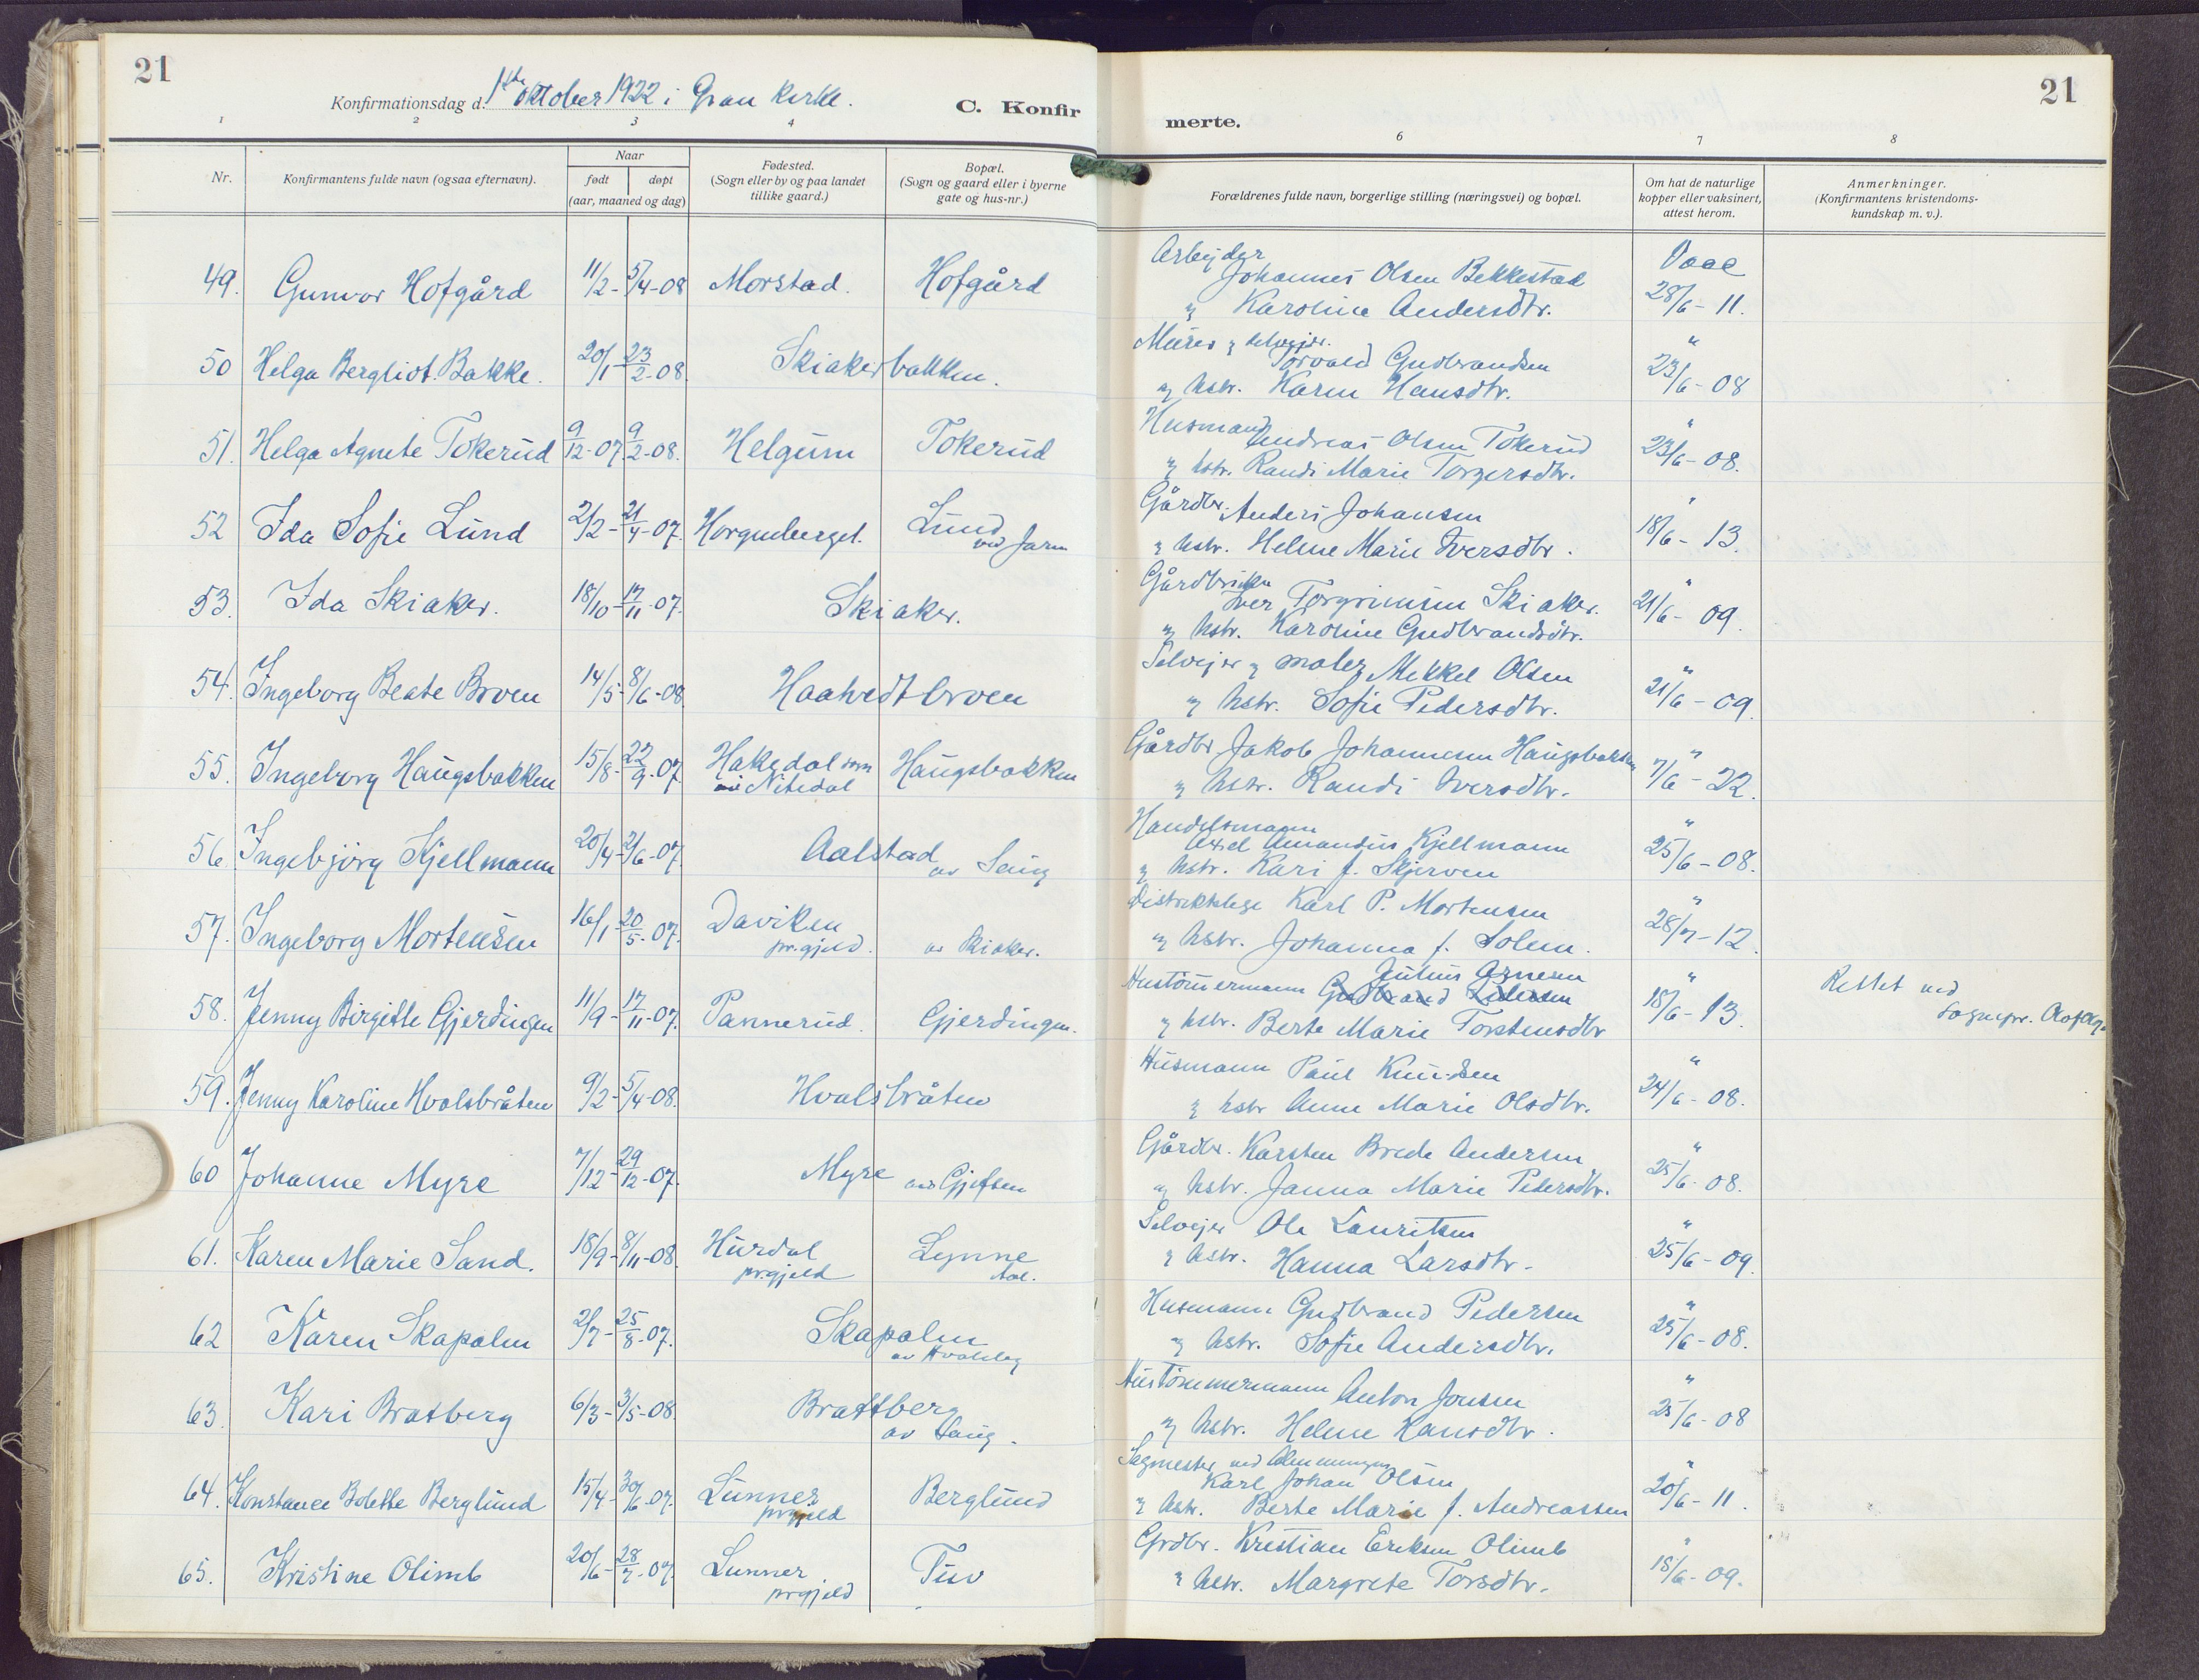 21
Konfirmationsdag d. 1ste oktober 1922 i Gran kirke.
C. Konfir
merte.
21
1 2 3 4 6 7 8
Nr.
Konfirmantens fulde navn (ogsaa efternavn).
Naar
født døpt
(aar, maaned og dag)
Fødested.
(Sogn eller by og paa landet
tillike gaard.)
Bopæl.
(Sogn og gaard eller i byerne
gate og hus-nr.)
Forældrenes fulde navn, borgerlige stilling (næringsvei) og bopæl.
Om hat de naturlige
kopper eller vaksinert,
attest herom.
Anmerkninger.
(Konfirmantens kristendoms-
kundskap m. v.).
49. Gunvor Hofgård 11/2 - 5/4-08 Morstad. Hofgård
Arbejder
Johannes Olsen Bekkestad
& Karoline Andersdtr.
Vacc
28/6 - 11.
50 Helga Bergliot Bakke. 20/1 - 23/2-08. Skiakerbakken.
Murer & selvejer.
Torvald Gudbrandsen
& hstr. Karen Hansdtr.
" 23/6 - 08
51. Helga Agnete Tokerud 9/12-07. 9/2-08. Helgum Tokerud
Husmand
Andreas Olsen Tokerud
& hstr. Randi Marie Torgersdtr.
" 23/6 - 08.
52 Ida Sofie Lund 2/2 - 21/4-07. Horgenberget. Lund
ved Jaren
Gårdbr. Anders Johansen
& hstr. Helene Marie Iversdtr.
" 18/6 - 13.
53. Ida Skiaker. 18/10 - 17/11-07. Skiaker.
Gårdbruker
Iver Torgrimsen Skiaker.
& hstr. Karoline Gudbrandsdtr.
" 21/6 - 09.
54. Ingeborg Beate Broen 14/5 - 8/6-08. Haakvedtbroen
Selvejer & maler Mikkel Olsen
& hstr. Sofie Pedersdtr.
" 21/6 - 09.
55. Ingeborg Haugsbakken 15/8 - 22/9-07. Hakedal sogn
Nitedal Haugsbakken
Gårdbr. Jakob Johannesen Haugsbakken
& hstr. Randi Iversdtr.
" 7/6 - 22.
56. Ingebjörg Kjellmann 20/4 - 2/6-07. Aalstad
av Seiug
Handelsmann
Axel Amandus Kjellmann
& hstr. Kari f. Skjerven
" 25/6 - 08.
57. Ingeborg Mortensen 16/1 - 20/5-07. Daviken
pr.gjeld. av Skiaker.
Distriktslege Karl P. Mortensen
& hstr. Johanna f. Solem.
" 28/7 - 12.
58. Jenny Birgitte Gjerdingen 11/9 - 17/11-07. Pannerud. Gjerdingen.
Julius Arnesen
Hustömermann Gudbrand Pedersen
& hstr. Berte Marie Torstensdtr
" 18/6 - 13.
Rettet ved
sognepr.
59. Jenny Karoline Hvalsbråten 9/2 - 5/4-08. Hvalsbråten
Husmann Paul Knudsen
& hstr Anne Marie Olsdtr.
" 24/6 - 08.
60 Johanne Myre 7/12 - 29/12-07. Myre av Gjefsen
Gårdbr. Karsten Brede Andersen
& hstr. Janna Marie Pedersdtr.
" 25/6 - 08.
61. Karen Marie Sand. 18/9 - 8/11-08. Hurdal
prgjeld Lynne
Aal.
Selvejer Ole Lauritsen
& hstr. Hanna Larsdtr.
" 25/6 - 09.
62 Karen Skapalen 2/7 - 25/8-07. Skapalen
av Hvaleby
Husmann Gudbrand Pedersen
& hstr. Sofie Andersdtr.
" 25/6 - 08.
63. Kari Bratberg 6/3 - 3/5-08. Brattberg
av Haug.
Hustömmermann Anton Jonsen
& hstr. Helene Hansdtr.
" 25/6 - 08
64. Konstance Bolette Berglund 15/4 - 30/6-07. Lunner
prgjeld Berglund
Sagmester ved Almenningen
Karl Johan Olsen
& hstr. Berte Marie f. Andreassen
" 20/6 - 11.
65. Kristine Olimb 20/6 - 28/7-07. Lunner
prgjeld Tuv
Grdbr. Kristian Eriksen Olimb
& hstr. Margrete Torsdtr.
" 18/6 - 09.